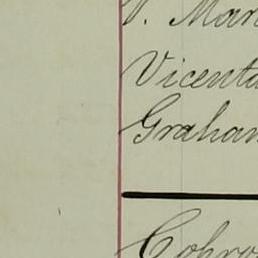 V. Man
Vicenta
Graham
Cohro